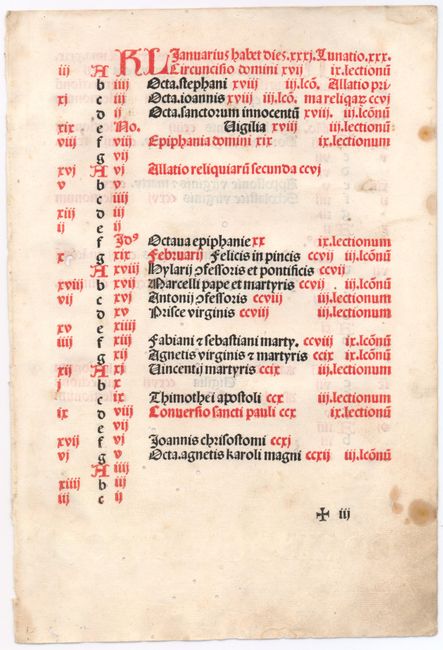 KL Januarius habet dies.xxxj.Lunatio.xxx.
iij A Circuncisio domini xvij ix.lectionū
b iiij Octa.stephani xviij iij.lcō. Allatio pri
xj c iij Octa.ioannis xviij iij.lcō. ma reliqaꝝ ccvj
d ij Octa.sanctorum innocentū xviij. iij.lcōnū
xix e No. Uigilia xviij iij.lectionum
viij f viij Epiphania domini xix ix.lectionum
g vij
xvj A vj Allatio reliquiarū secunda ccvj
v b v
c iiij
xiij d iij
ij e ij
f Jdꝰ Octaua epiphanie xx ix.lectionum
x g xix Februarij Felicis in pincis ccvij iij.lcōnū
A xviij Hylarij ꝯfessoris et pontificis ccvij
xviij b xvij Marcelli pape et martyris ccvij iij.lcōnū
vij c xvj Antonij ꝯfessoris ccviij iij.lectionum
d xv Prisce virginis ccviij iij.lectionum
xv e xiiij
iiij f xiij Fabiani ⁊ sebastiani marty. ccviij ix.lcōnū
g xij Agnetis virginis ⁊ martyris ccix ix.lcōnū
xij A xj Uincentij martyris ccix iij.lectionum
j b x
c ix Thimothei apostoli ccx iij.lectionum
ix d viij Conuersio sancti pauli ccx ix.lectionum
e vij
xvij f vj Joannis chrisostomi ccxj
vj g v Octa.agnetis karoli magni ccxij iij.lcōnū
A iiij
xiiij b iij
iij c ij
✠ iij